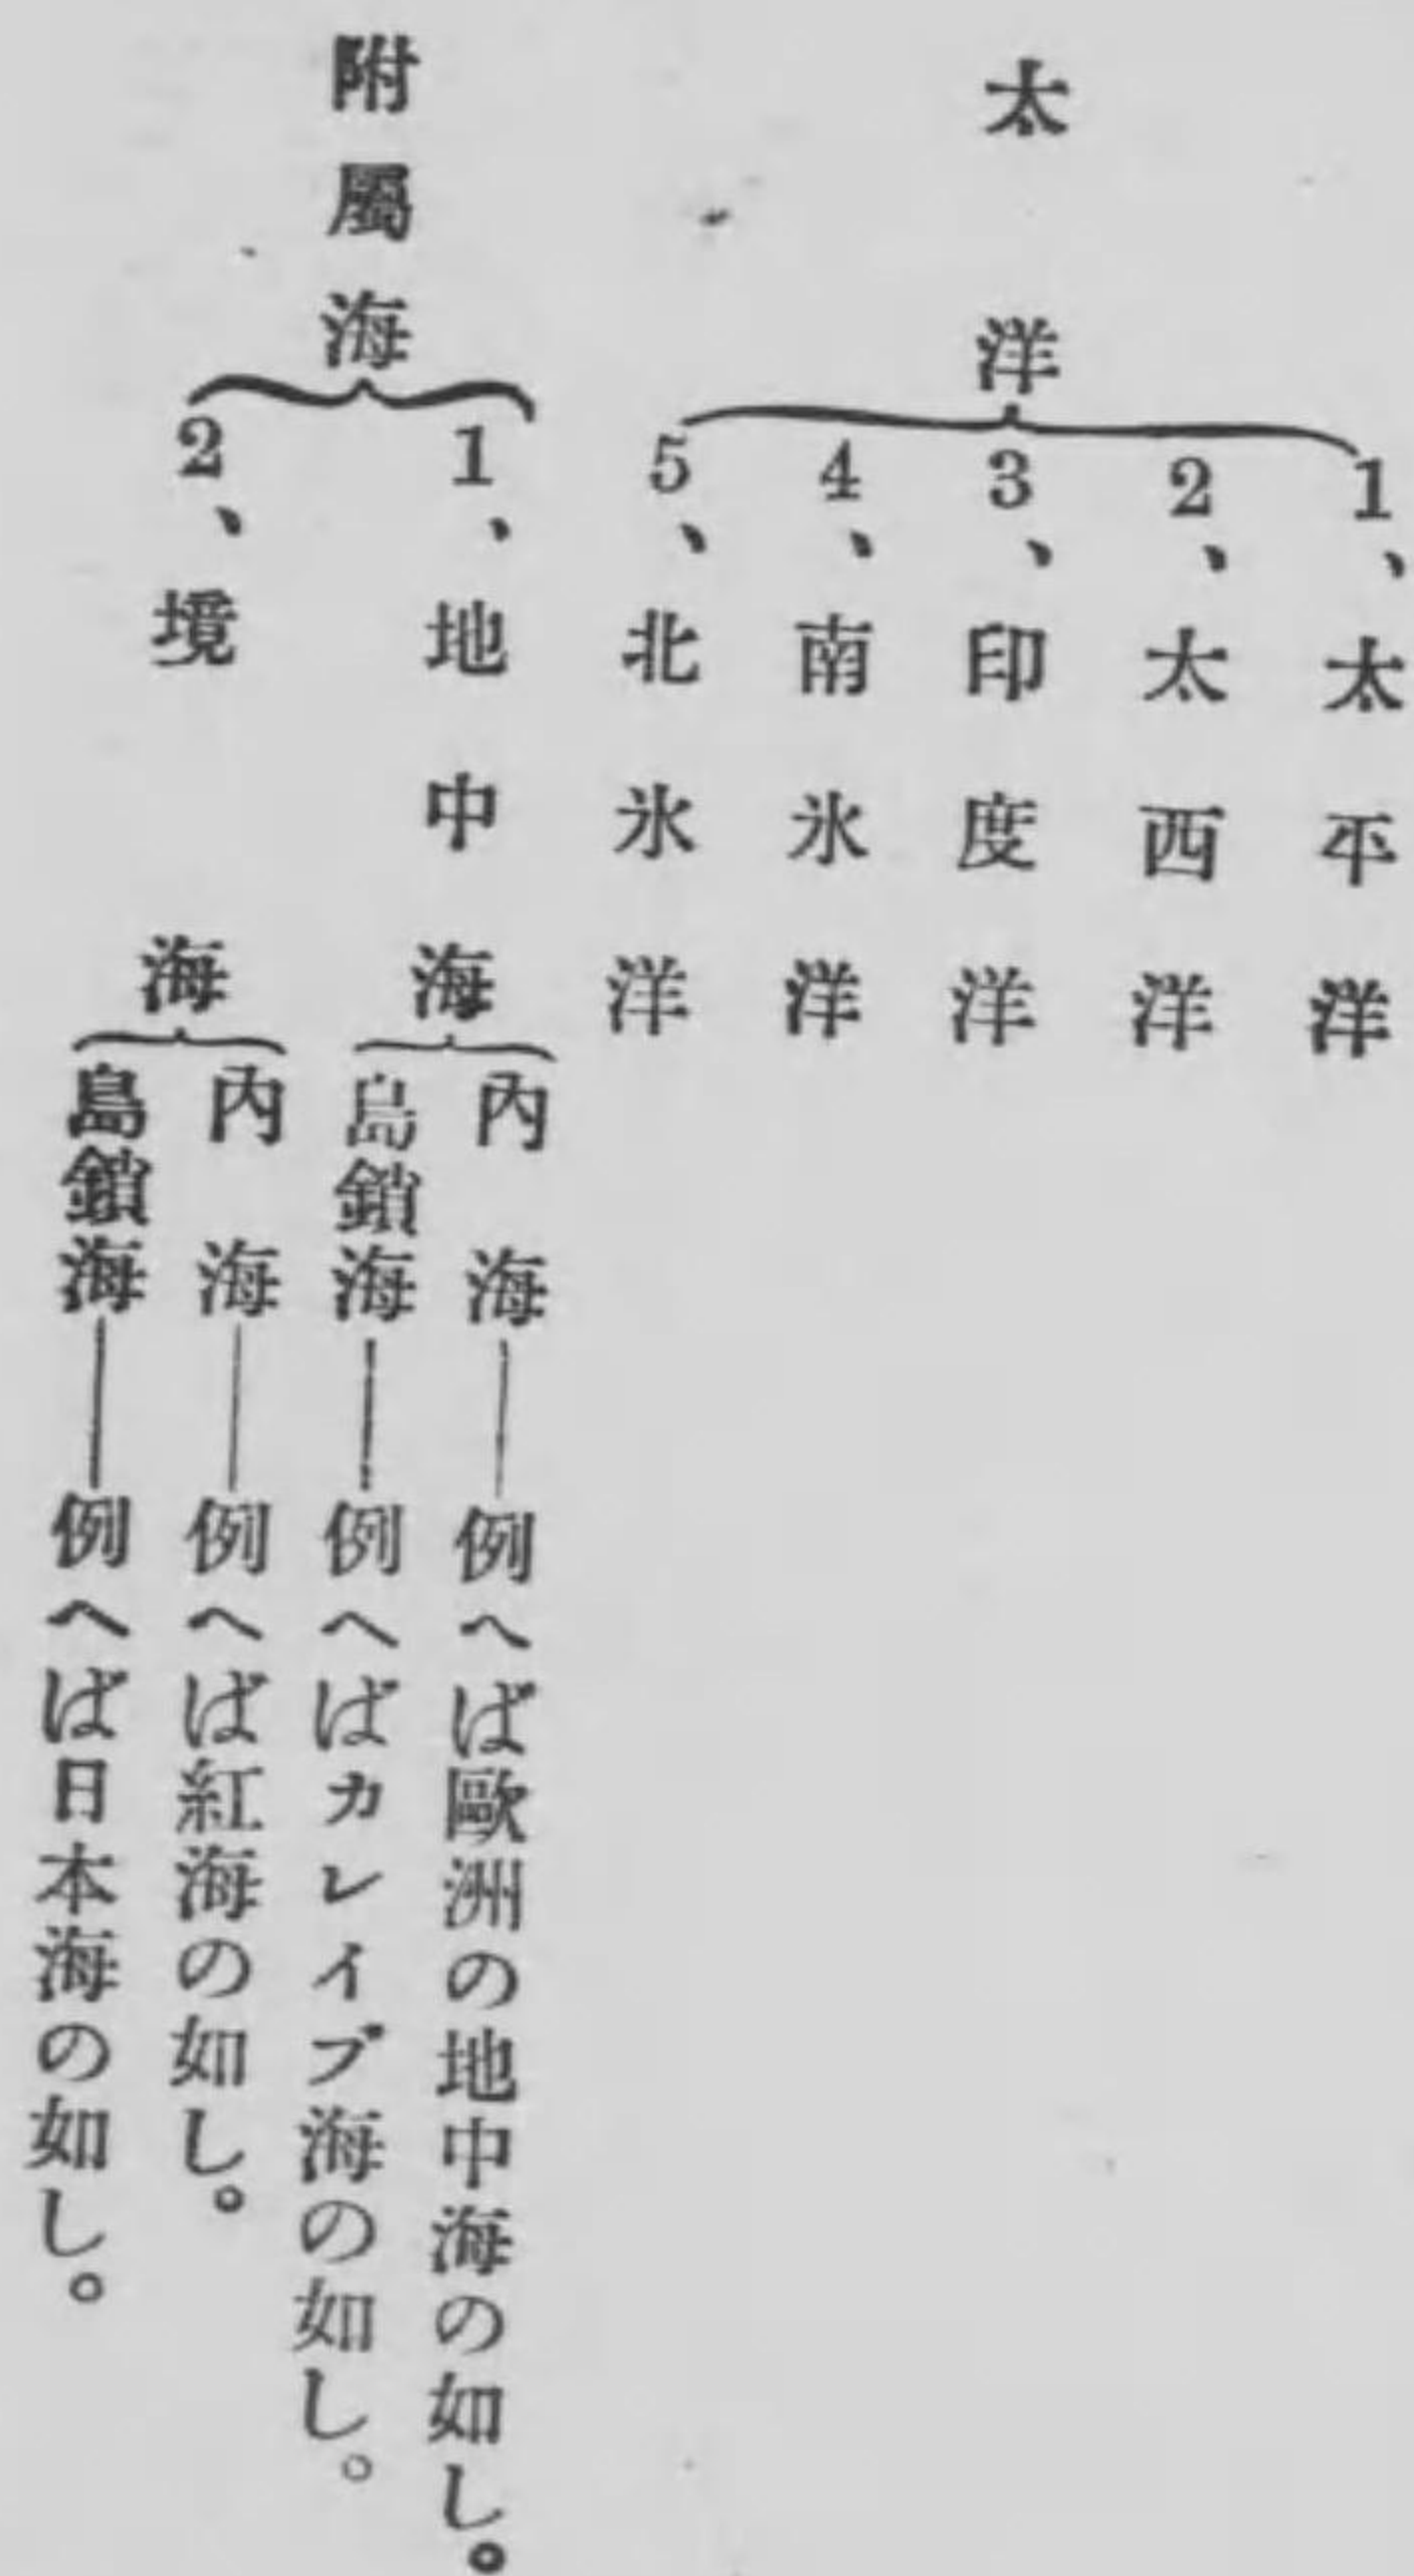 太洋
1、太平洋
2、太西洋
3、印度洋
4、南氷洋
5、北氷洋
附屬海
1、地中海
內海――例へば歐洲の地中海の如し。
島鎖海――例へばカレイブ海の如し。
2、境海
內海――例へば紅海の如し。
島鎖海――例へば日本海の如し。